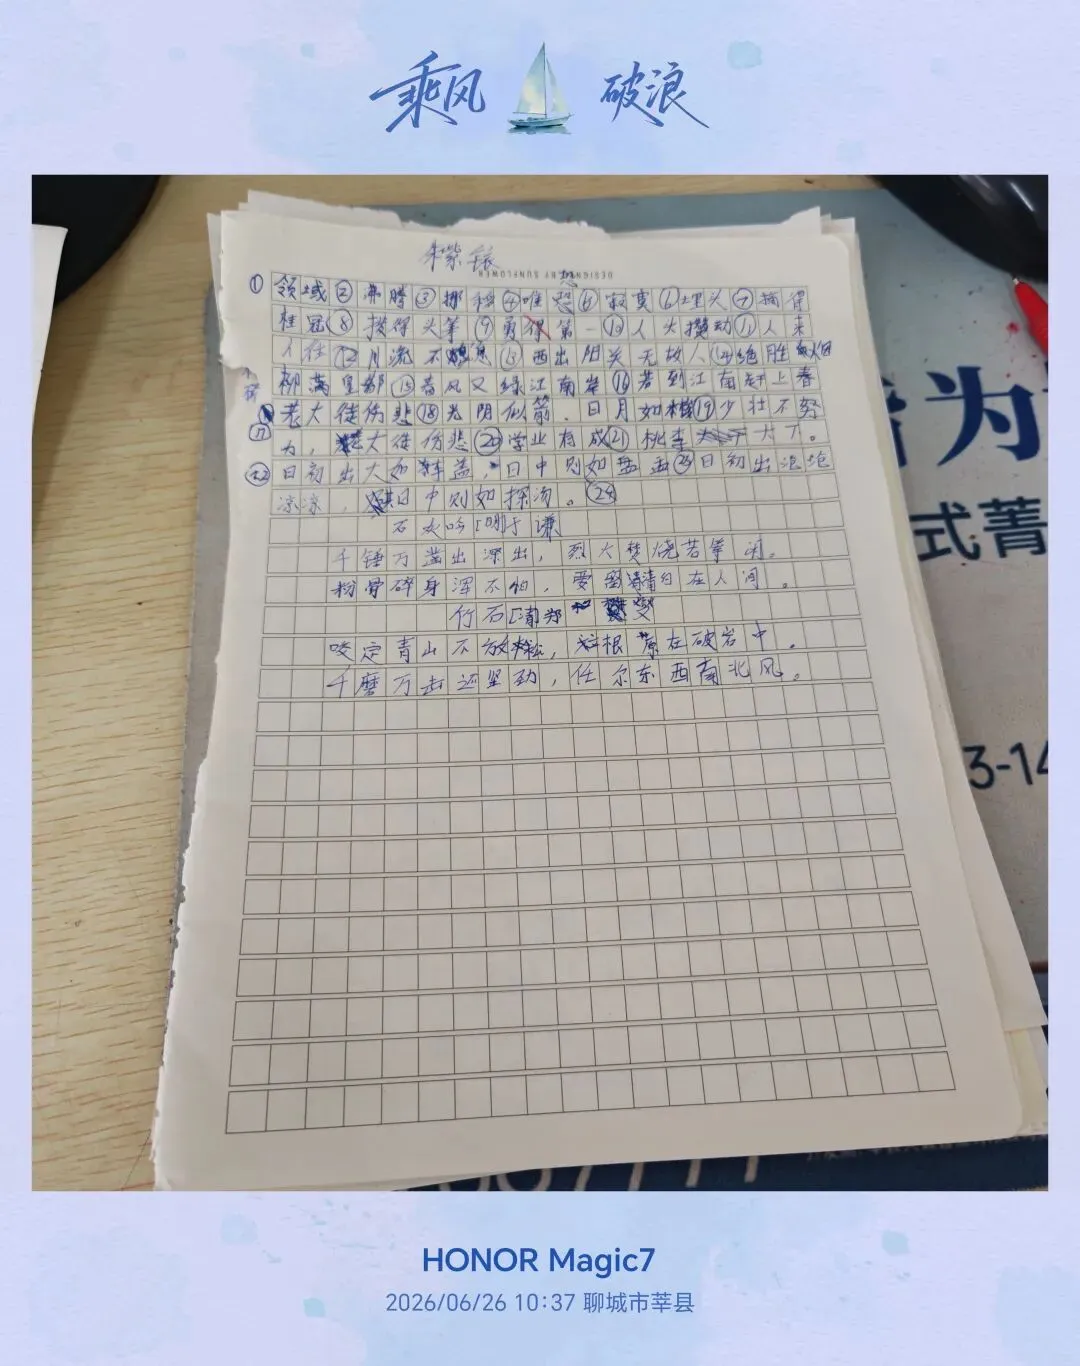 乘风 破浪
朱紫
DESIGNED BY SUNFLOWER
想
① 领域②沸腾③挪移④唯恐⑤寂寞⑥埋头⑦摘得
桂冠⑧拨得头筹⑨勇得第一⑩人头攒动⑪人来
人往⑫川流不息⑬西出阳关无故人⑭绝胜烟
柳满皇都⑮春风又绿江南岸⑯若到江南赶上春
⑰老大徒伤悲⑱光阴似箭,日月如梭⑲少壮不努
力,老大徒伤悲⑳学业有成㉑桃李天下。
㉒日初出大如车盖,日中则如盘盂㉓日初出沧沧
凉凉,日中则如探汤。㉔
石灰吟[明]于谦
千锤万凿出深出,烈火焚烧若等闲。
粉骨碎身浑不怕,要留清白在人间。
竹石[清]郑燮
咬定青山不放松,立根原在破岩中。
千磨万击还坚劲,任尔东西南北风。
为
式菁
3-14
HONOR Magic7
2026/06/26 10:37 聊城市莘县